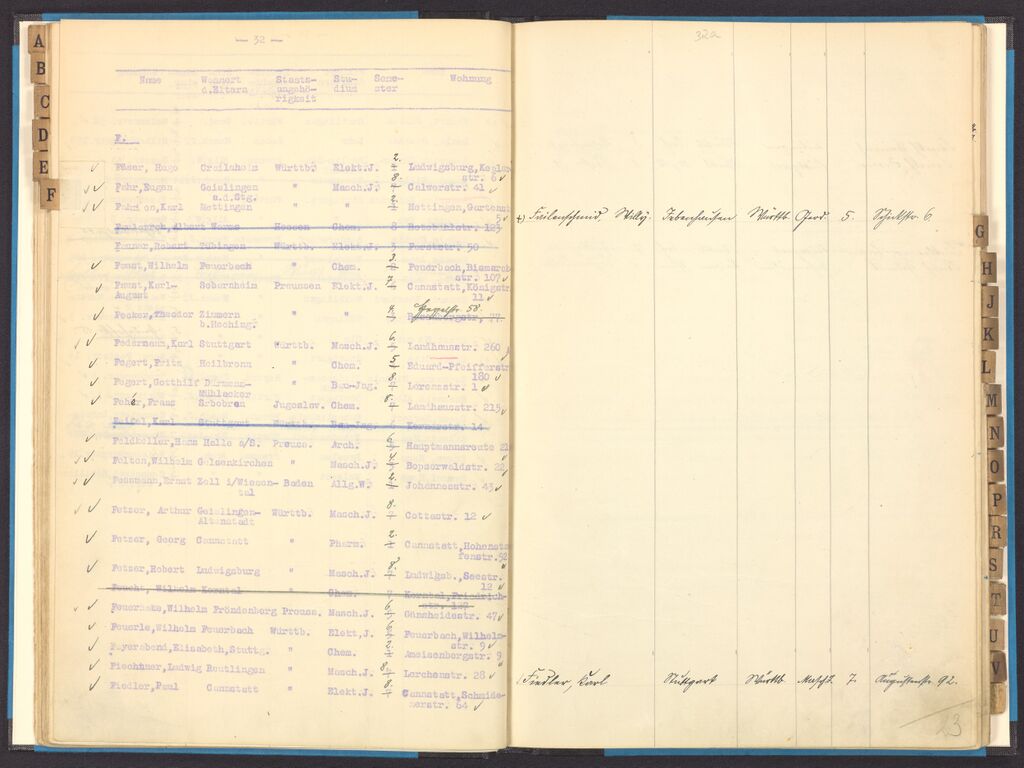 — 32 —
Name Wohnort d.Eltern Staats- angehö- rigkeit Stu- dium Seme- ster Wohnung
F.
Fäser, Hugo Crailsheim Württb. Elekt.J. 2. Ludwigsburg,
str. 6
Fahr,Eugen Geislingen " Masch.J. 8. Calwerstr. 41
a.d.Stg.
Karl Mettingen " " 2. Mettingen,
5
Albert Worms Hessen Chem. 8 Rotebühlstr. 123
Robert Tübingen Württb. Elekt.J. Forststr. 50
Faust,Wilhelm Feuerbach " Chem. 3. Feuerbach,Bismarck
str. 107
Faust,Karl- Sobernheim Preussen Elekt.J. 7. Cannstatt,Königstr
August 11
Fecker,Theodor Zimmern " " 4. 58.
b.Heching. 77
Federmann,Karl Stuttgart Württb. Masch.J. 6. Landhausstr. 260
Fegert,Fritz Heilbronn " Chem. 5. Eduard-Pfeifferstr
180
Fegert,Gotthilf Dürrmenz- " Bau-Jng. 8. Lerchenstr. 1
Mühlacker
Fehér,Franz Srbobran Jugoslav. Chem. 8. Landhausstr. 215
Karl Stuttgart Württb. Bau-Jng. 6 Kernerstr. 14
Feldkeller,Hans Halle a/S. Preuss. Arch. 6. Hauptmannsreute 21
Felten,Wilhelm Gelsenkirchen " Masch.J. 4. Bopserwaldstr. 22
Ernst Zell i/Wiesen- Baden Allg.W. 2. Johannesstr. 43
tal
Fetzer, Arthur Geislingen- Württb. Masch.J. 8. Cottastr. 12
Altenstadt
Fetzer, Georg Cannstatt " Pharm. 2. Cannstatt,Hohenst
fenstr.52
Fetzer,Robert Ludwigsburg " Masch.J. 8. Ludwigsb.,Seestr.
12
Feucht, Wilhelm Korntal " Chem. 7 Korntal,Friedrich-
str. 137
Wilhelm Fröndenberg Preuss. Masch.J. 6. Gänsheidestr. 47
Feuerle,Wilhelm Feuerbach Württb. Elekt.J. 6. Feuerbach,Wilhelm-
str. 9
Feyerabend,Elisabeth,Stuttg. " Chem. 2. Ameisenbergstr. 9
Fiechtner,Ludwig Reutlingen " Masch.J. 8. Lerchenstr. 28
Fiedler,Paul Cannstatt " Elekt.J. 8. Cannstatt,Schmide-
nerstr. 64
32a
Feilenschmid, Willy, Jebenhausen Württb. Geod. 5. Schickstr. 6.
Fiedler, Karl Stuttgart Württb. Masch. 7. Augustenstr. 92.
23
A
B
C
D
E
F
G
H
J
K
L
M
N
O
P
R
S
T
U
V